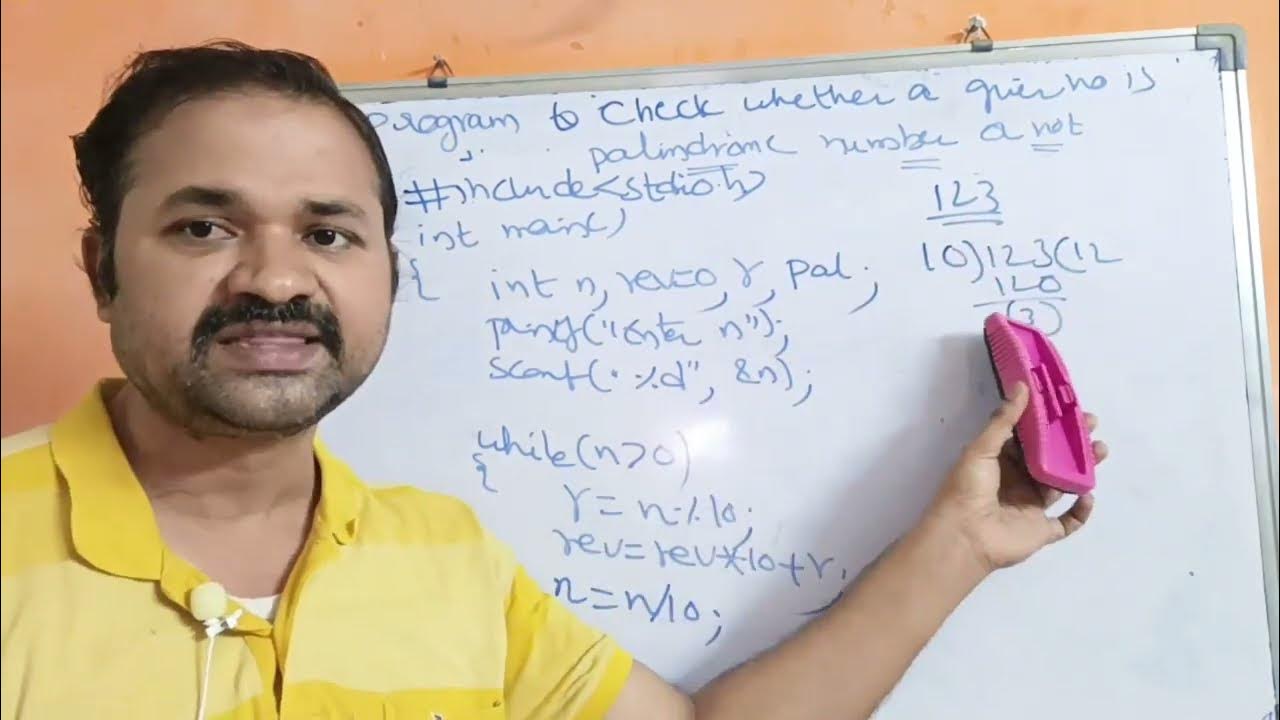 program to check whether a given no is
palindrome number a not
#include<stdio.h>
int main()
{ int n, rev=0, r, pal;
printf("Enter n");
scanf("%d", &n);
while(n>0)
{
r = n%10;
rev=rev*10+r;
n=n/10;
123
10)123(12
120
(3)